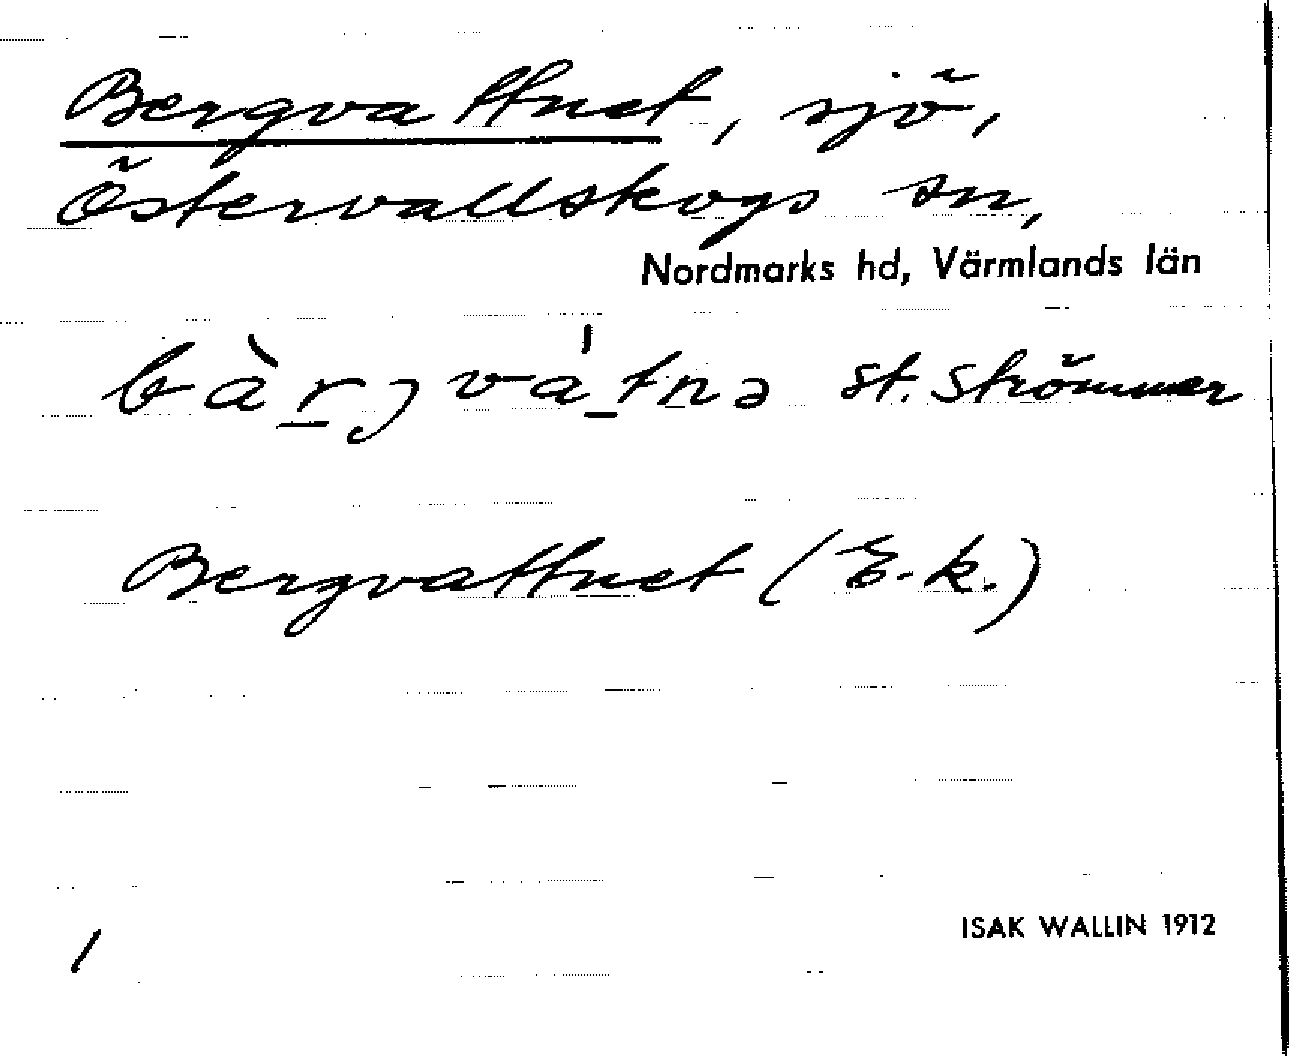 Bergvattnet, sjö,
Östervallskogs sn,
Nordmarks hd, Värmlands län
bàrjvátnə st. Strömmer
Bergvattnet (E.k.)
ISAK WALLIN 1912
1